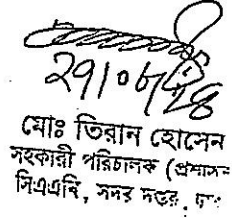 ২৭।০৮।২৪
মোঃ তিরান হোসেন
সহকারী পরিচালক (প্রশাসন
সিএএবি, সদর দপ্তর,